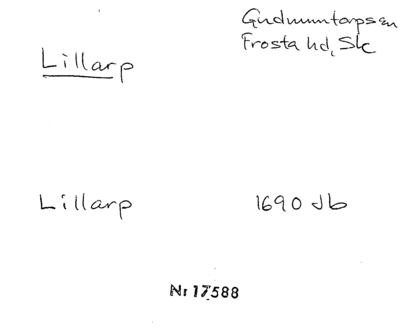 Gudmuntorps sn
Frosta hd, Sk
Lillarp
Lillarp 1690 Jb
Nr 17588